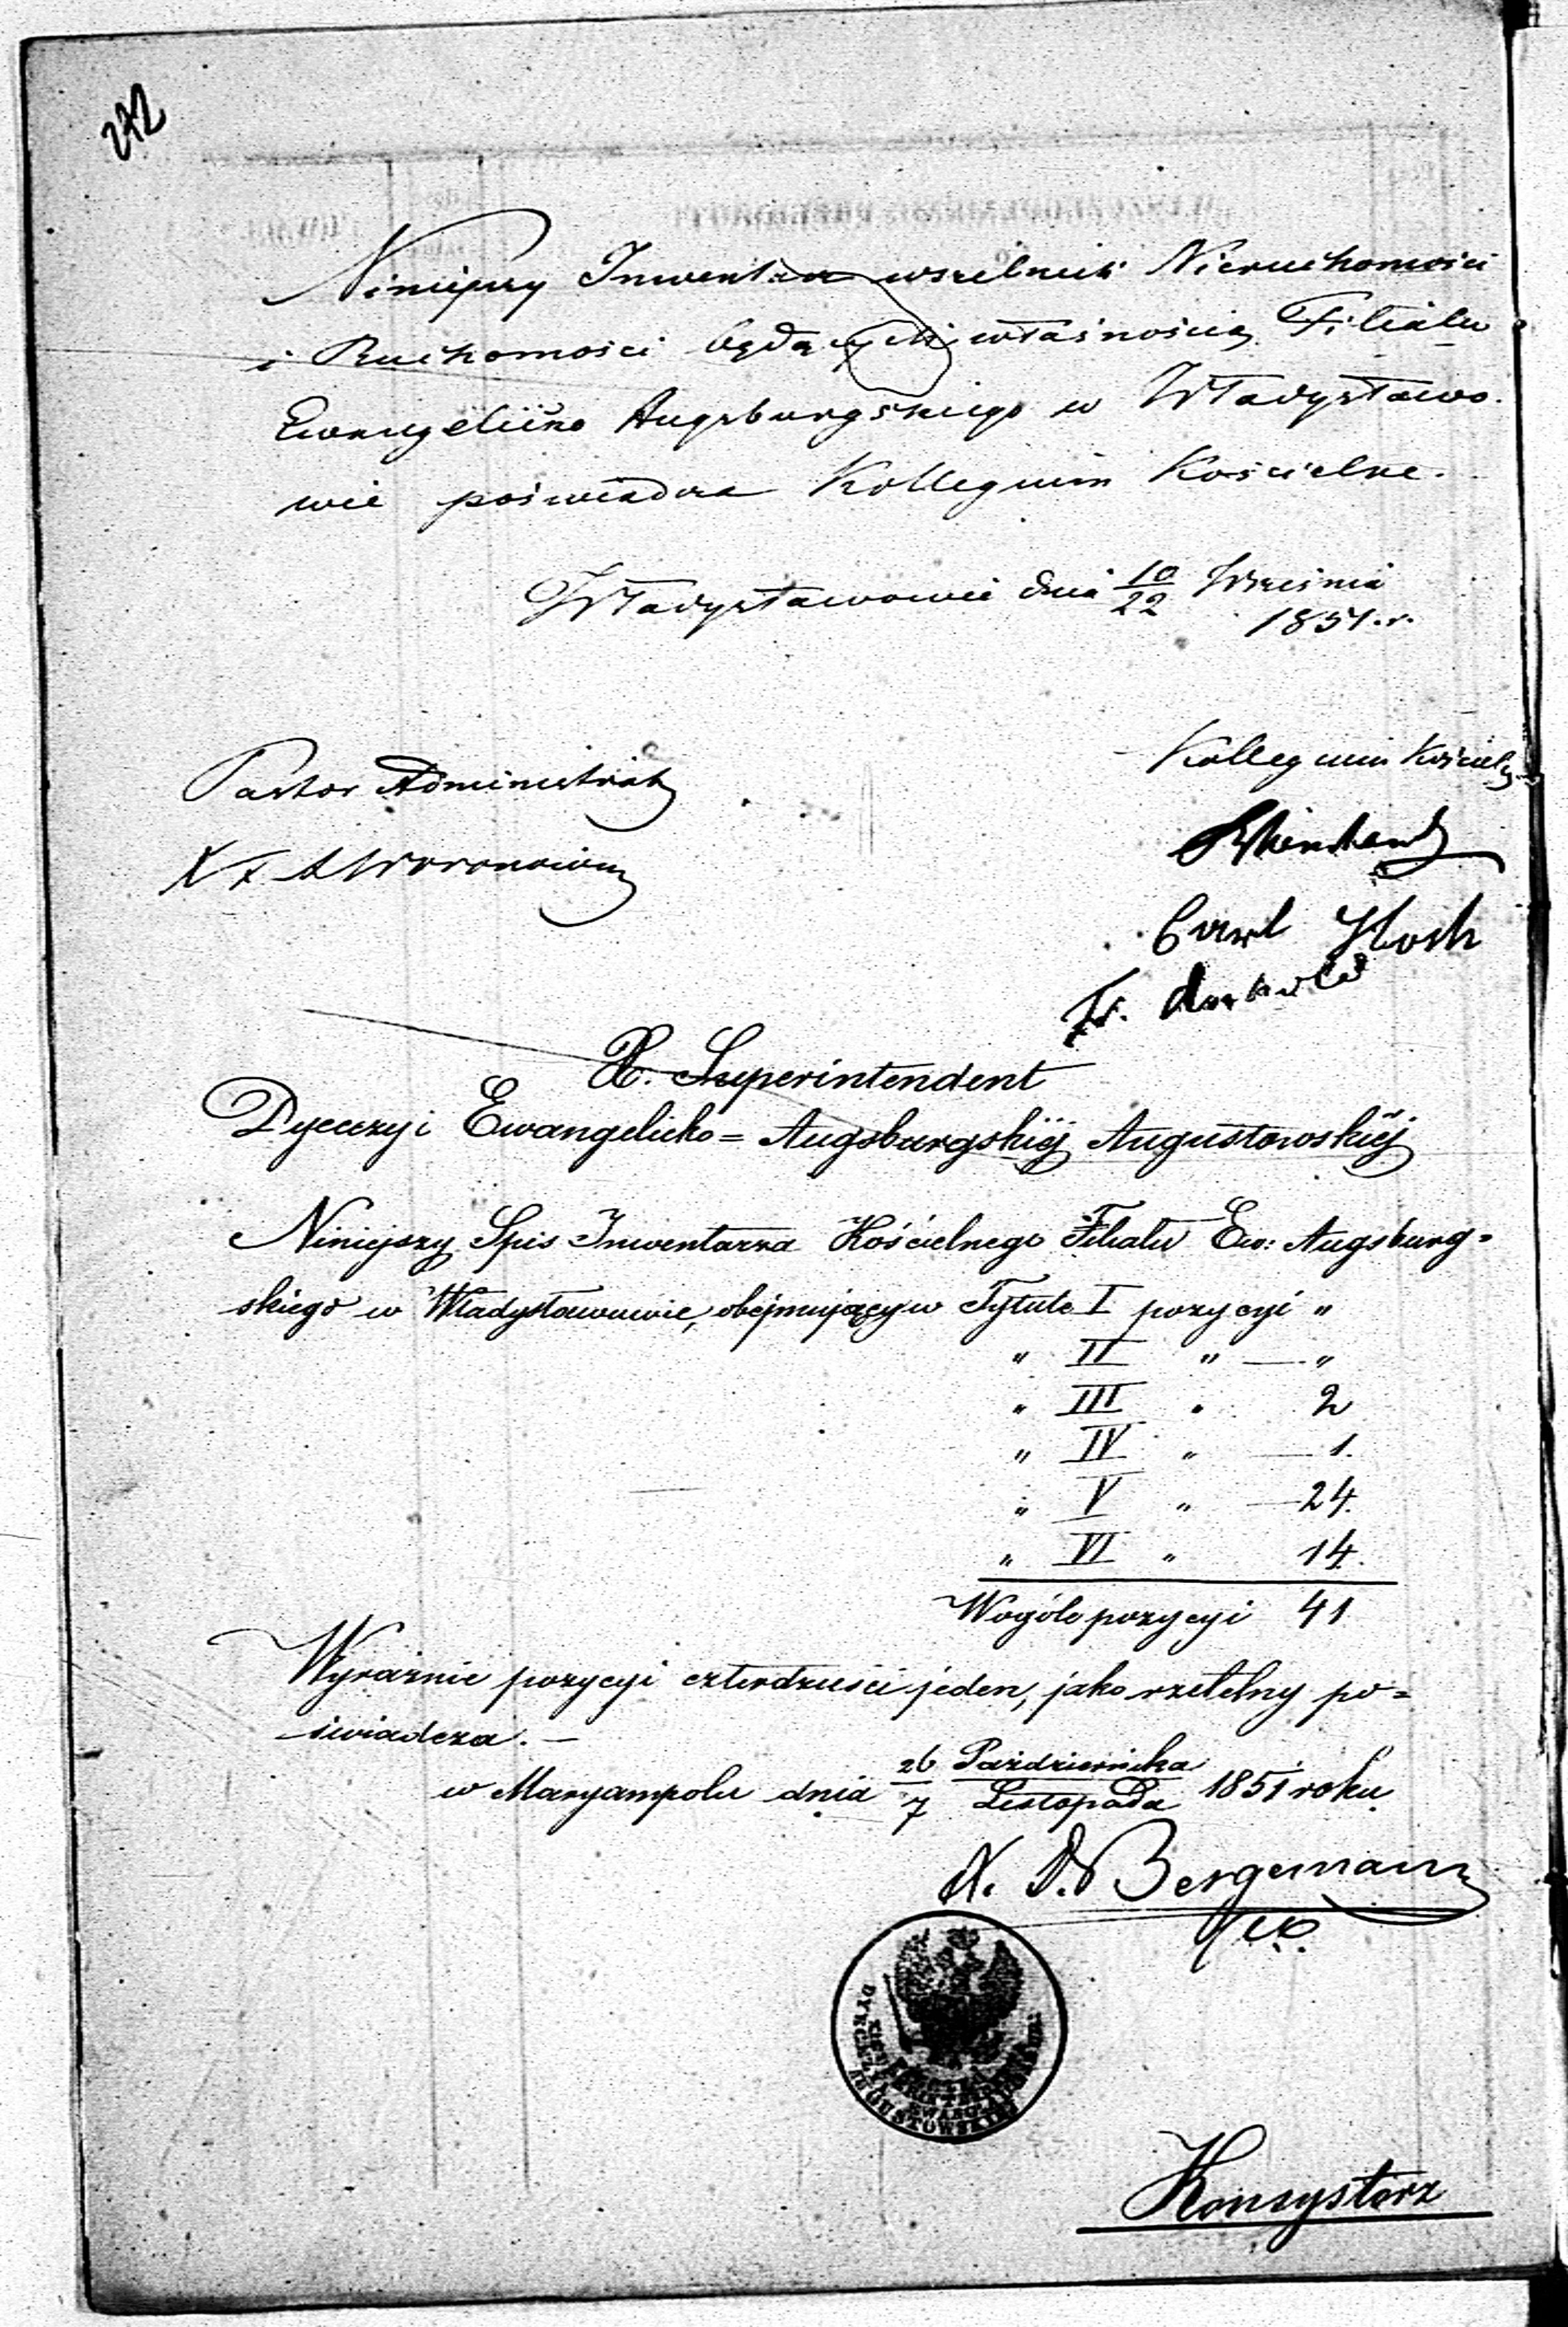 242
Niniejszy Inwentarz wszelkich Nieruchomości
i Ruchomości będących własnością Filiału
Ewangelicko Augsburgskiego w Władysławo-
wie poświadcza Kollegium Kościelne.
Władysławowie dnia 10/22 Września
1851. r.
Pastor Administrator
Kollegium Kościelne
Carl Koch
Fr.
X. Superintendent
Dyecezyi Ewangelicko= Augsburgskiéj Augustowskiéj
Niniejszy Spis Inwentarza Kościelnego Filiału Ew: Augsburg=
skiego w Władysławowie, obejmujący w Tytule I pozycyi "
" II " — "
" III " 2
" IV " — 1.
" V " — 24.
" VI " 14.
Wogóle pozycyi 41
Wyraźnie pozycyi czterdzieści jeden, jako rzetelny po=
świadcza. —
w Maryampolu dnia 26/7 Października/Listopada 1851 roku.
X. D. Bergemann
DYECEZYI AUGUSTOWSKIEJ
Konsystorz